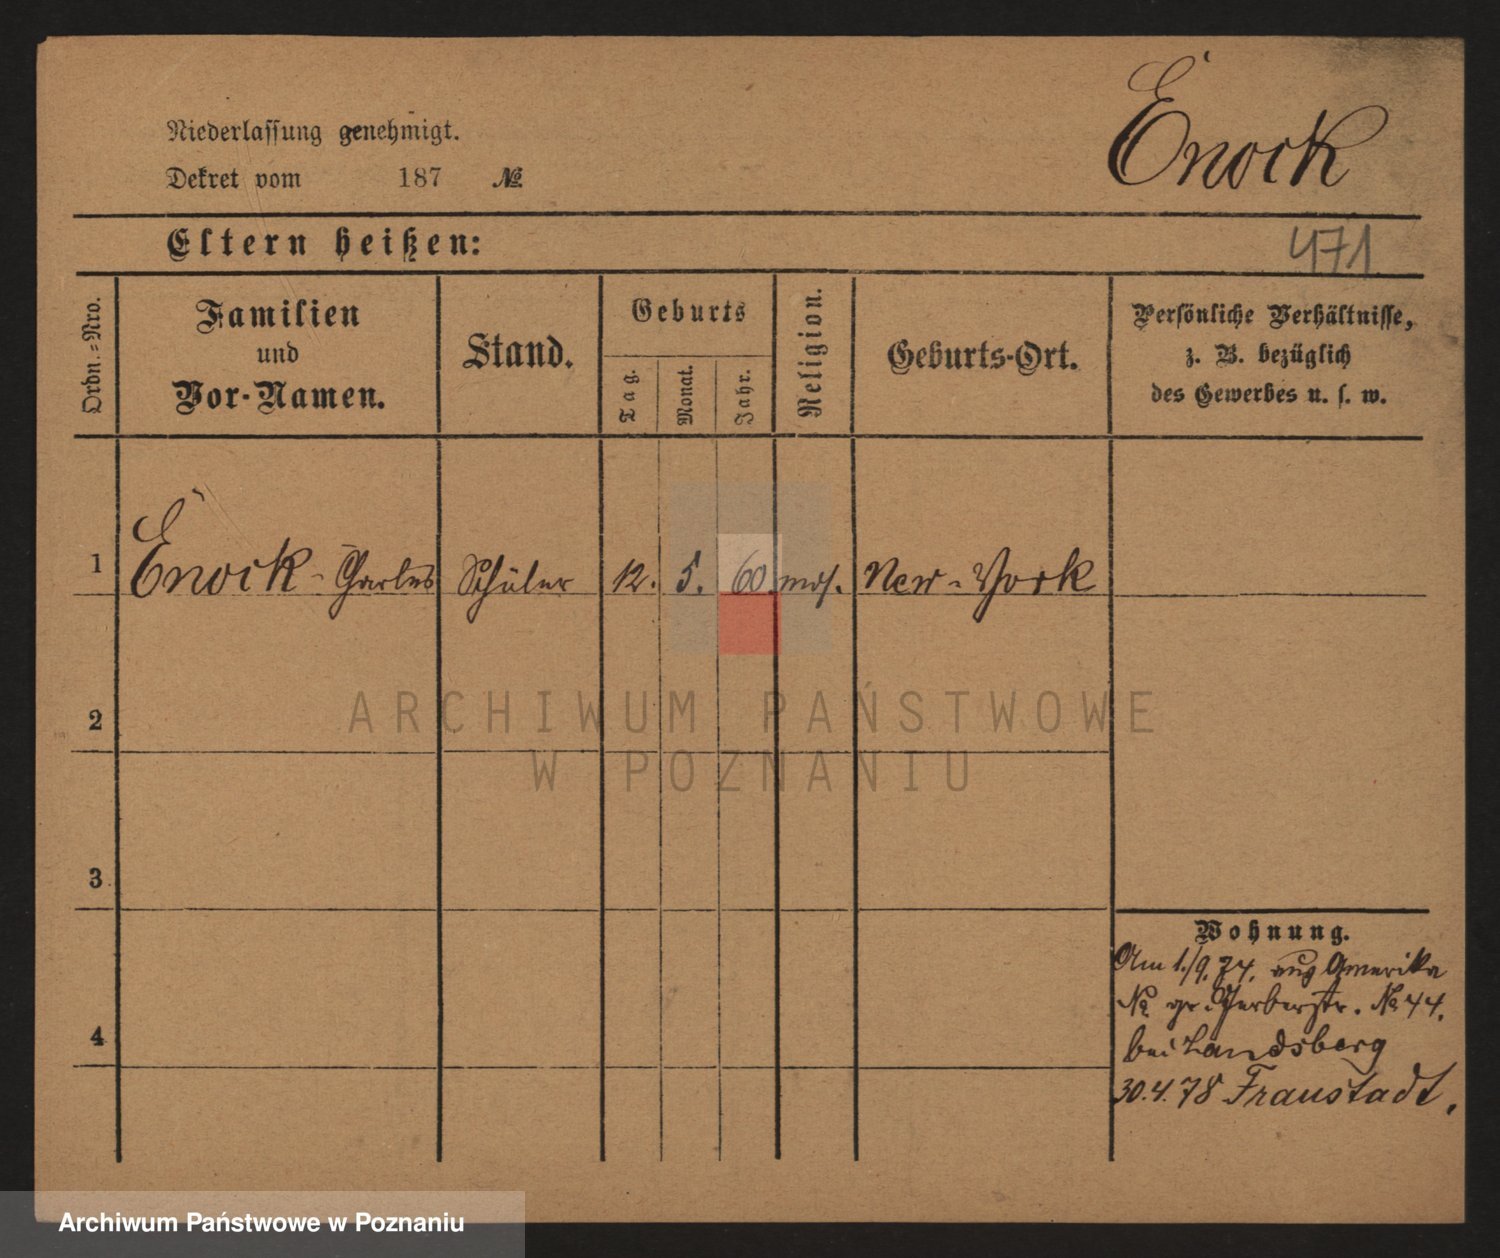 Enock
Niederlassung genehmigt.
Dekret vom 187 №
Eltern heißen:
471
Ordn.=Nro.
Familien
und
Vor-Namen.
Stand.
Geburts
Tag.
Monat.
Jahr.
Religion.
Geburts-Ort.
Persönliche Verhältnisse,
z. B. bezüglich
des Gewerbes u. s. w.
1 Enock - Charles Schüler 12. 5. 60. mos. New-York
ARCHIWUM PAŃSTWOWE
W POZNANIU
2
3
4
Wohnung.
Am 1./9. 74. aus Amerika
№ gr. Gerberstr. № 44.
bei Landsberg
30.4.78 Fraustadt.
Archiwum Państwowe w Poznaniu